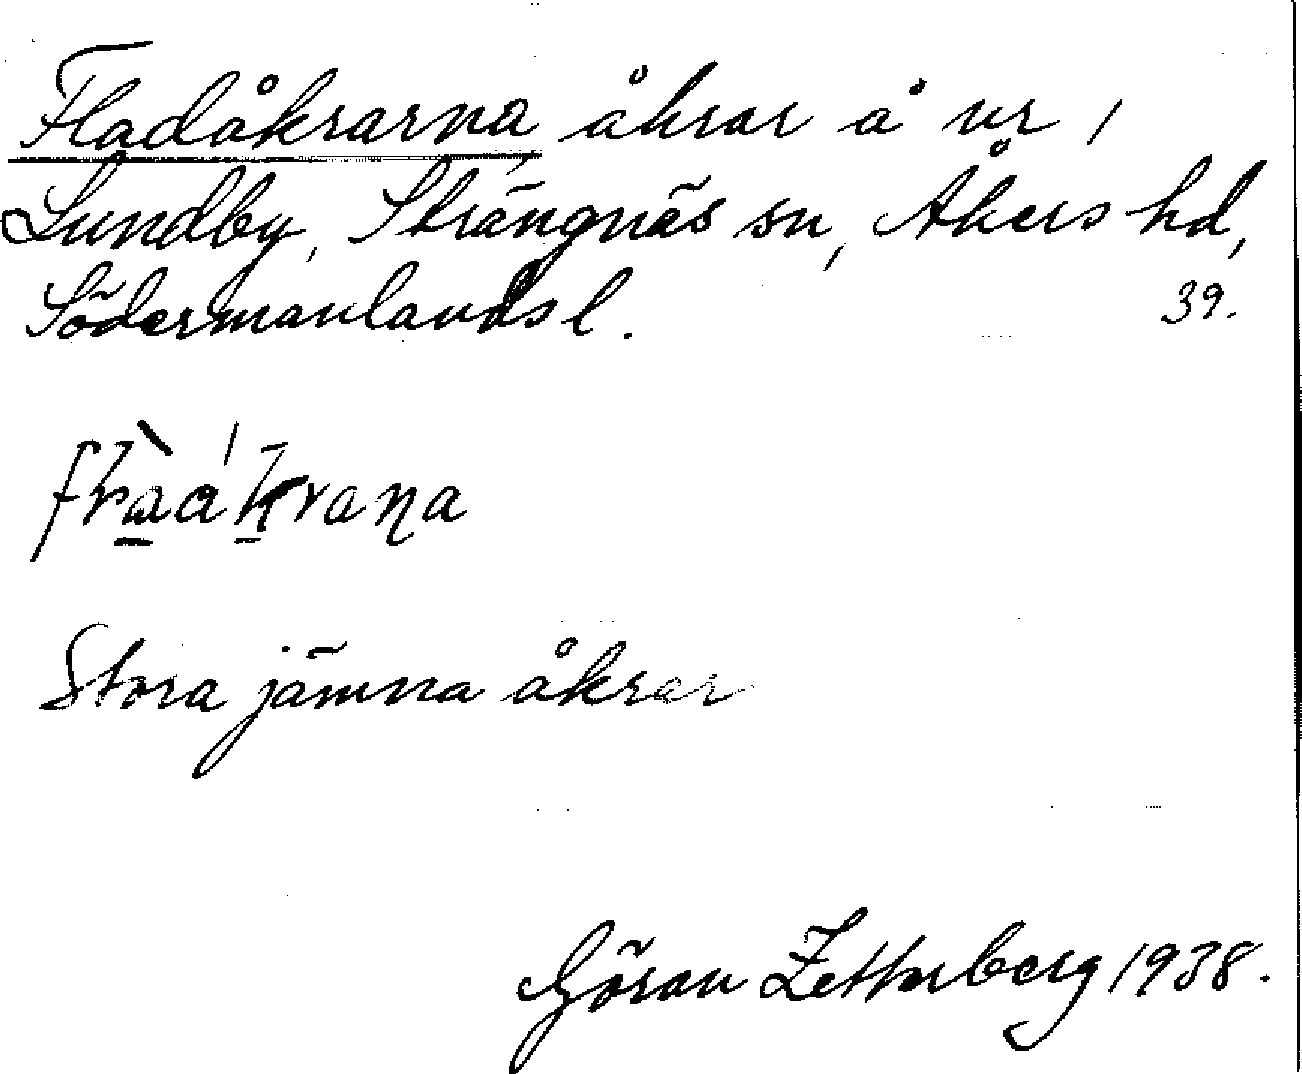 Fladåkrarna, åkrar å nr 1
Lundby, Strängnäs sn, Åkers hd,
Södermanlands l. 39.
Stora jämna åkrar
Göran Zetterberg 1938.